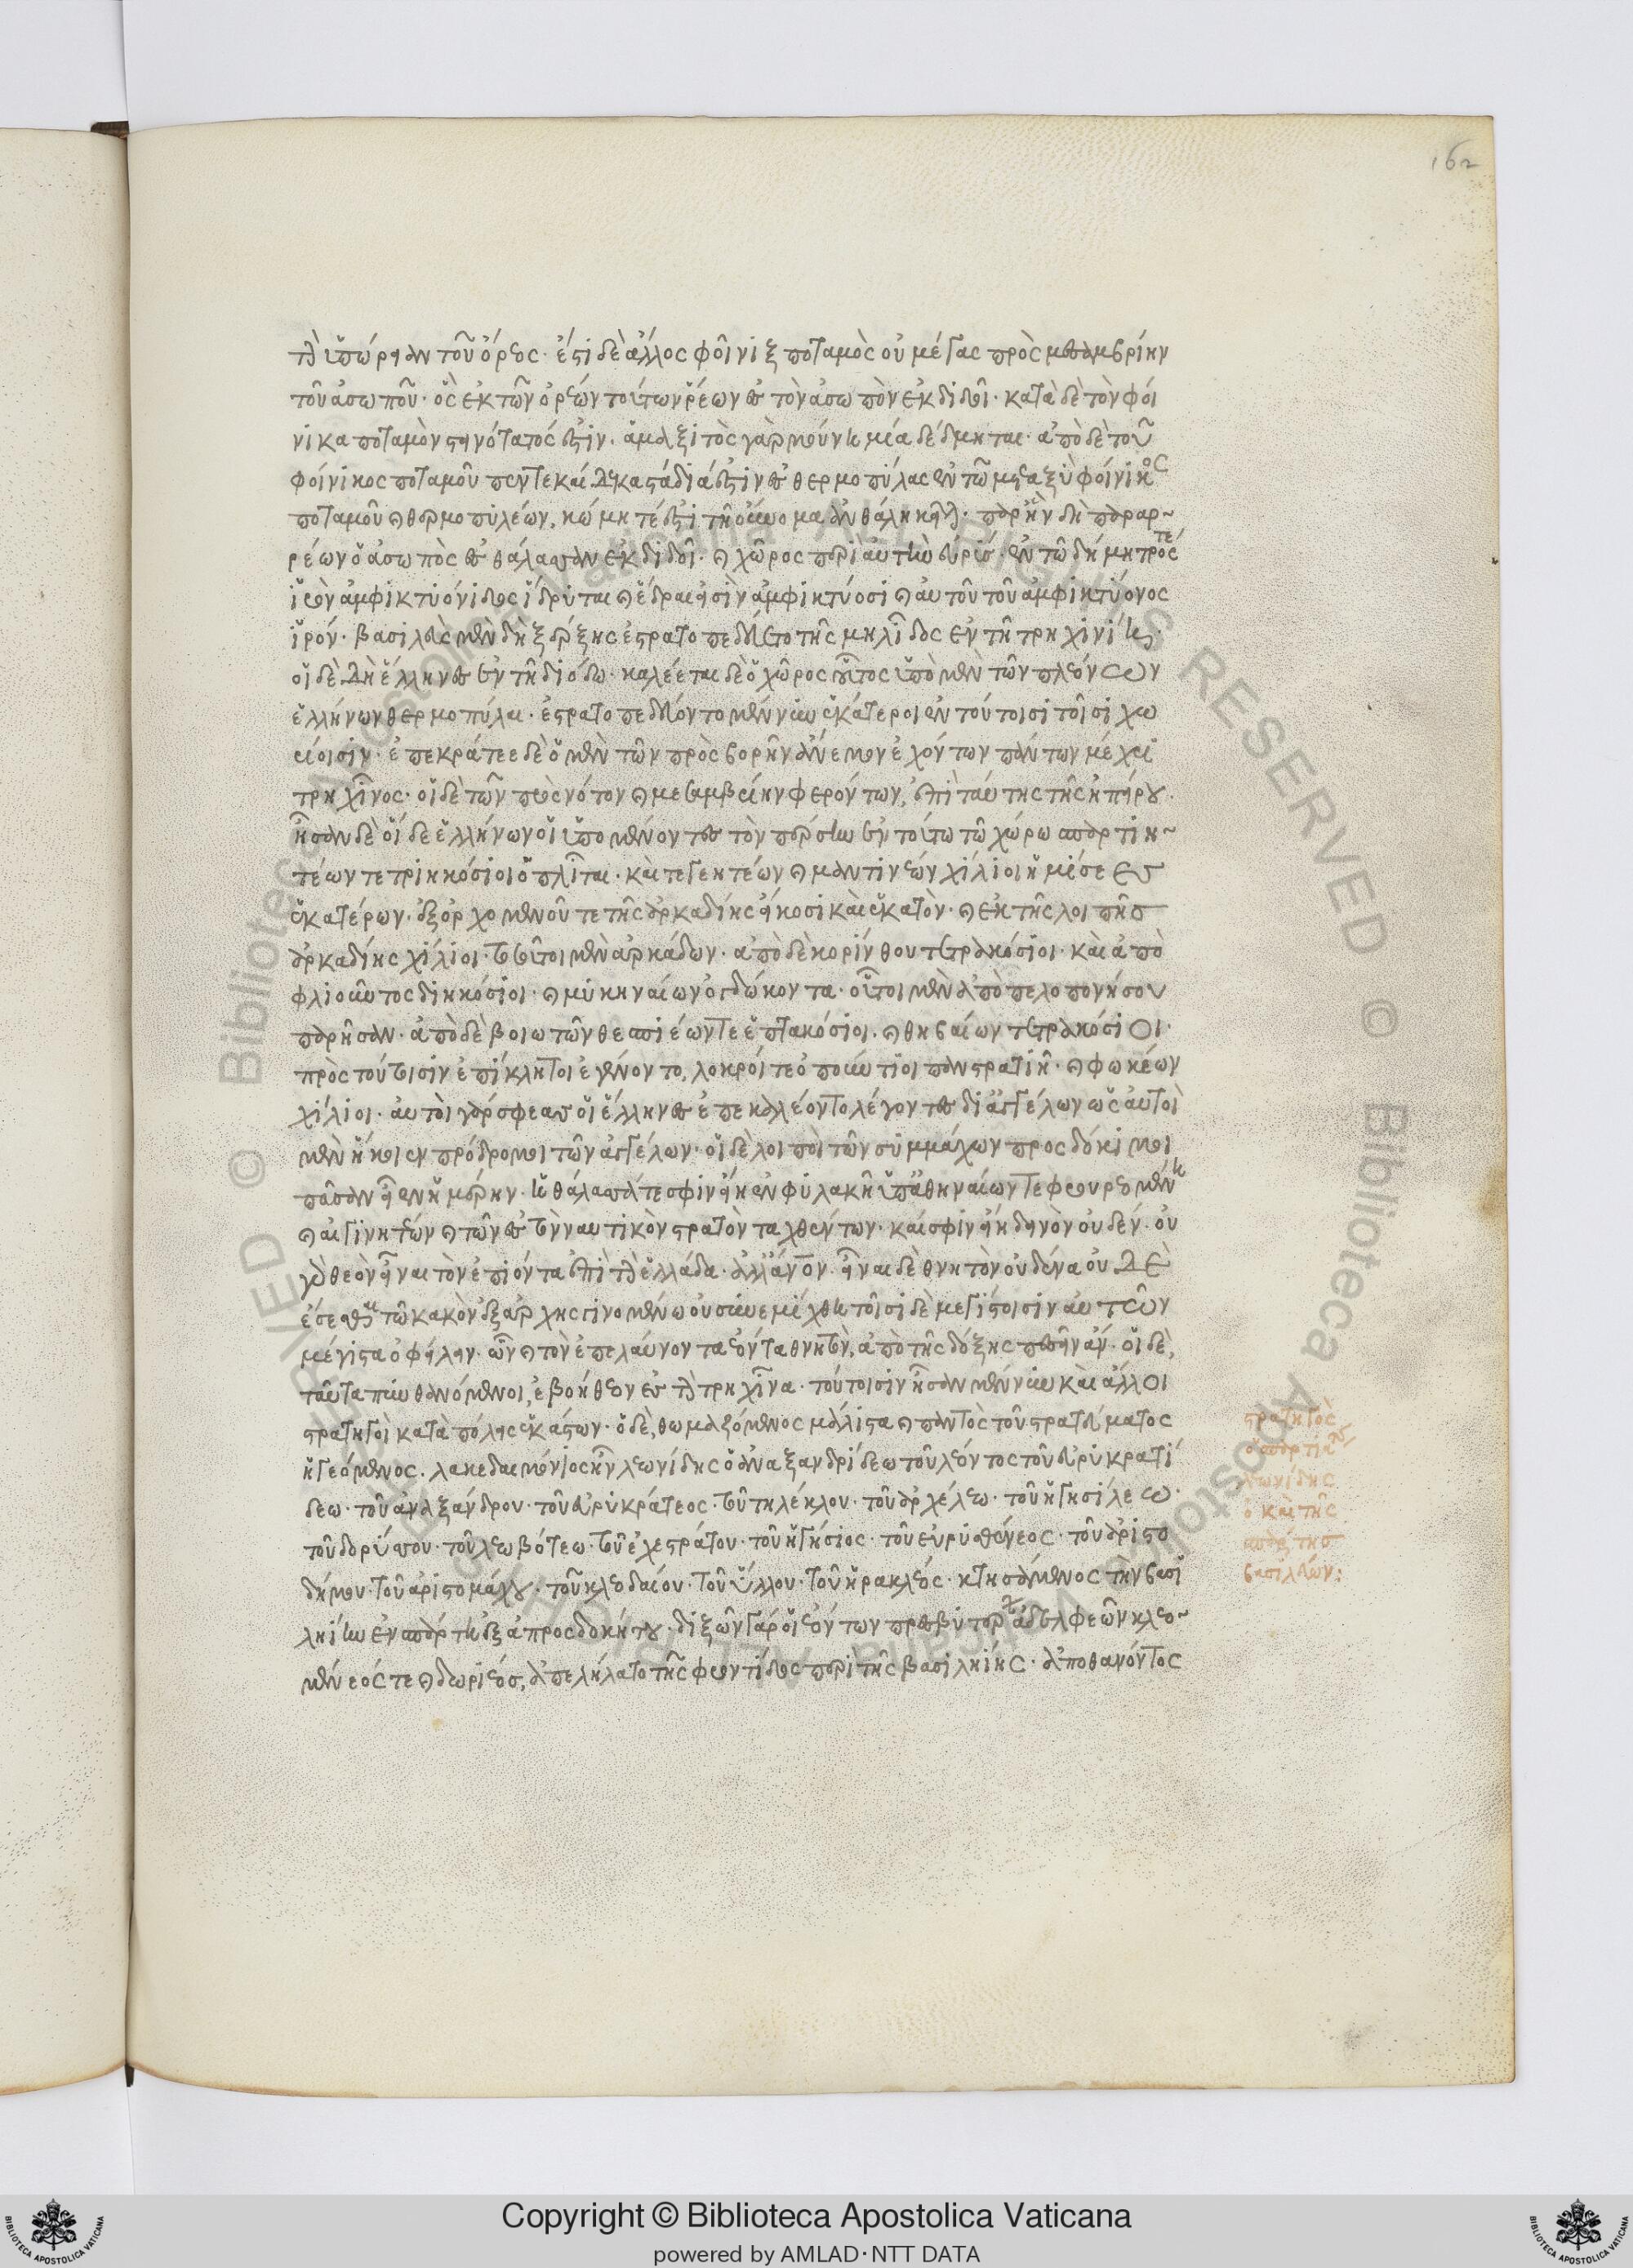 162
τὴν ὑπώρειαν τοῦ ὄρεος· ἔστι δὲ ἄλλος φοῖνιξ ποταμὸς οὐ μέγας πρὸς μεσαμβρίην
τοῦ ἀσωποῦ· ὃς ἐκ τῶν ὀρέων τούτων ῥέων ἐς τὸν ἀσωπὸν ἐκδιδοῖ· κατὰ δὲ τὸν φοί
νικα ποταμὸν στεινότατός ἐστιν. ἁμαξιτὸς γὰρ μούνη μία δέδμηται· ἀπὸ δὲ τοῦ
φοίνικος ποταμοῦ πεντεκαίδεκα στάδιά ἐστιν ἐς θερμοπύλας ἐν τῶ μεταξὺ φοίνικος
ποταμοῦ καὶ θερμοπυλέων, κώμη τέ ἐστι τῆ οὔνομα ἀνθήλη κεῖται· παρ' ἣν δὴ παραρ
ρέων ὁ ἀσωπὸς ἐς θάλασσαν ἐκδιδοῖ· καὶ χῶρος περὶ αὐτὴν εὐρύς· ἐν τῶ δήμητρός τε
ἱρὸν ἀμφικτυονίδος ἵδρυται καὶ ἕδραι εἰσὶν ἀμφικτύοσι καὶ αὐτοῦ τοῦ ἀμφικτύονος
ἱρόν· βασιλεὺς μὲν δὴ ξέρξης ἐστρατοπεδεύετο τῆς μηλίδος ἐν τῆ τρηχινίη·
οἱ δὲ δὴ ἕλληνες ἐν τῆ διόδω· καλέεται δὲ ὁ χῶρος οὗτος ὑπὸ μὲν τῶν πλεόνων
ἑλλήνων θερμοπύλαι· ἐστρατοπεδεύοντο μὲν νυν ἑκάτεροι ἐν τούτοισι τοῖσι χω
ρίοισιν· ἐπεκράτεε δὲ ὁ μὲν τῶν πρὸς βορῆν ἄνεμον ἐχόντων πάντων μέχρι
τρηχῖνος· οἱ δὲ τῶν πρὸς νότον καὶ μεσαμβρίην φερόντων, ἐπὶ ταύτης τῆς ἠπείρου·
ἦσαν δὲ οἵδε ἑλλήνων οἱ ὑπομένοντες τὸν πέρσην ἐν τούτω τῶ χώρω σπαρτιη
τέων τε τριηκόσιοι ὁπλῖται· καὶ τεγεητέων καὶ μαντινέων χίλιοι ἡμίσεες
ἑκατέρων· ἐξ ὀρχομενοῦ τε τῆς ἀρκαδίης εἴκοσι καὶ ἑκατὸν· καὶ ἐκ τῆς λοιπῆς
ἀρκαδίης χίλιοι· τοσοῦτοι μὲν ἀρκάδων· ἀπὸ δὲ κορίνθου τετρακόσιοι· καὶ ἀπὸ
φλιοῦντος διηκόσιοι· καὶ μυκηναίων ὀγδώκοντα· οὗτοι μὲν ἀπὸ πελοπονήσου
παρῆσαν· ἀπὸ δὲ βοιωτῶν θεσπιέων τε ἑπτακόσιοι· καὶ θηβαίων τετρακόσιοι·
πρὸς τούτοισιν ἐπίκλητοι ἐγένοντο, λοκροί τε ὀπούντιοι πανστρατιῆ· καὶ φωκέων
χίλιοι· αὐτοὶ γάρ σφεας οἱ ἕλληνες ἐπεκαλέοντο λέγοντες δι' ἀγγέλων ὡς αὐτοὶ
μὲν ἥκοιεν πρόδρομοι τῶν ἀγγέλων· οἱ δὲ λοιποὶ τῶν συμμάχων προσδόκιμοι
πᾶσαν εἶεν ἡμέρην· ἡ θάλασσά τε σφιν εἴη ἐν φυλακῆ ὑπ' ἀθηναίων τε φρουρεομένη
καὶ αἰγινητέων καὶ τῶν ἐς τὸν ναυτικὸν στρατὸν ταχθέντων· καί σφιν εἴη δεινὸν οὐδέν· οὐ
γὰρ θεὸν εἶναι τὸν ἐπιόντα ἐπὶ τὴν ἑλλάδα· ἀλλ' ἄνον· εἶναι δὲ θνητὸν οὐδένα οὐδὲ
ἔσεσθαι τῶ κακὸν ἐξ ἀρχῆς γινομένω οὐ συνεμίχθη τοῖσι δὲ μεγίστοισιν αὐτῶν
μέγιστα ὀφείλειν· ὦν καὶ τὸν ἐπελαύνοντα ἐόντα θνητὸν, ἀπὸ τῆς δόξης πεσεῖν ἄν· οἱ δὲ,
ταῦτα πυνθανόμενοι, ἐβοήθεον ἐς τὴν τρηχῖνα· τούτοισιν ἦσαν μέν νυν καὶ ἄλλοι
στρατηγοὶ κατὰ πόλις ἑκάστων· ὁ δὲ, θωμαζόμενος μάλιστα καὶ παντὸς τοῦ στρατεύματος
ἡγεόμενος· λακεδαιμόνιος ἦν λεωνίδης ὁ ἀναξανδρίδεω τοῦ λέοντος τοῦ εὐρυκρατί
δεω· τοῦ ἀναξάνδρου· τοῦ εὐρυκράτεος· τοῦ τηλέκλου· τοῦ ἀρχέλεω· τοῦ ἡγησίλεω·
τοῦ δορύσσου· τοῦ λεωβότεω· τοῦ ἐχεστράτου· τοῦ ἡγήσιος· τοῦ εὐρυσθένεος· τοῦ ἀριστο
δήμου· τοῦ ἀριστομάχου· τοῦ κλεοδαίου· τοῦ ὕλλου· τοῦ ἡρακλέος· κτησάμενος τὴν βασι
ληίην ἐν σπάρτη ἐξ ἀπροσδοκήτου· διξῶν γάρ οἱ ἐόντων πρεσβυτέρων ἀδελφεῶν κλεο
μένεός τε καὶ δωριέος, ἀπελήλατο τῆς φροντίδος περὶ τῆς βασιληίης· ἀποθανόντος
στρατηγὸς
ὁ σπαρτιητέων
λεωνίδης
ὁ καὶ τῆς
σπάρτης
βασιλεύων:
Copyright © Biblioteca Apostolica Vaticana
powered by AMLAD·NTT DATA